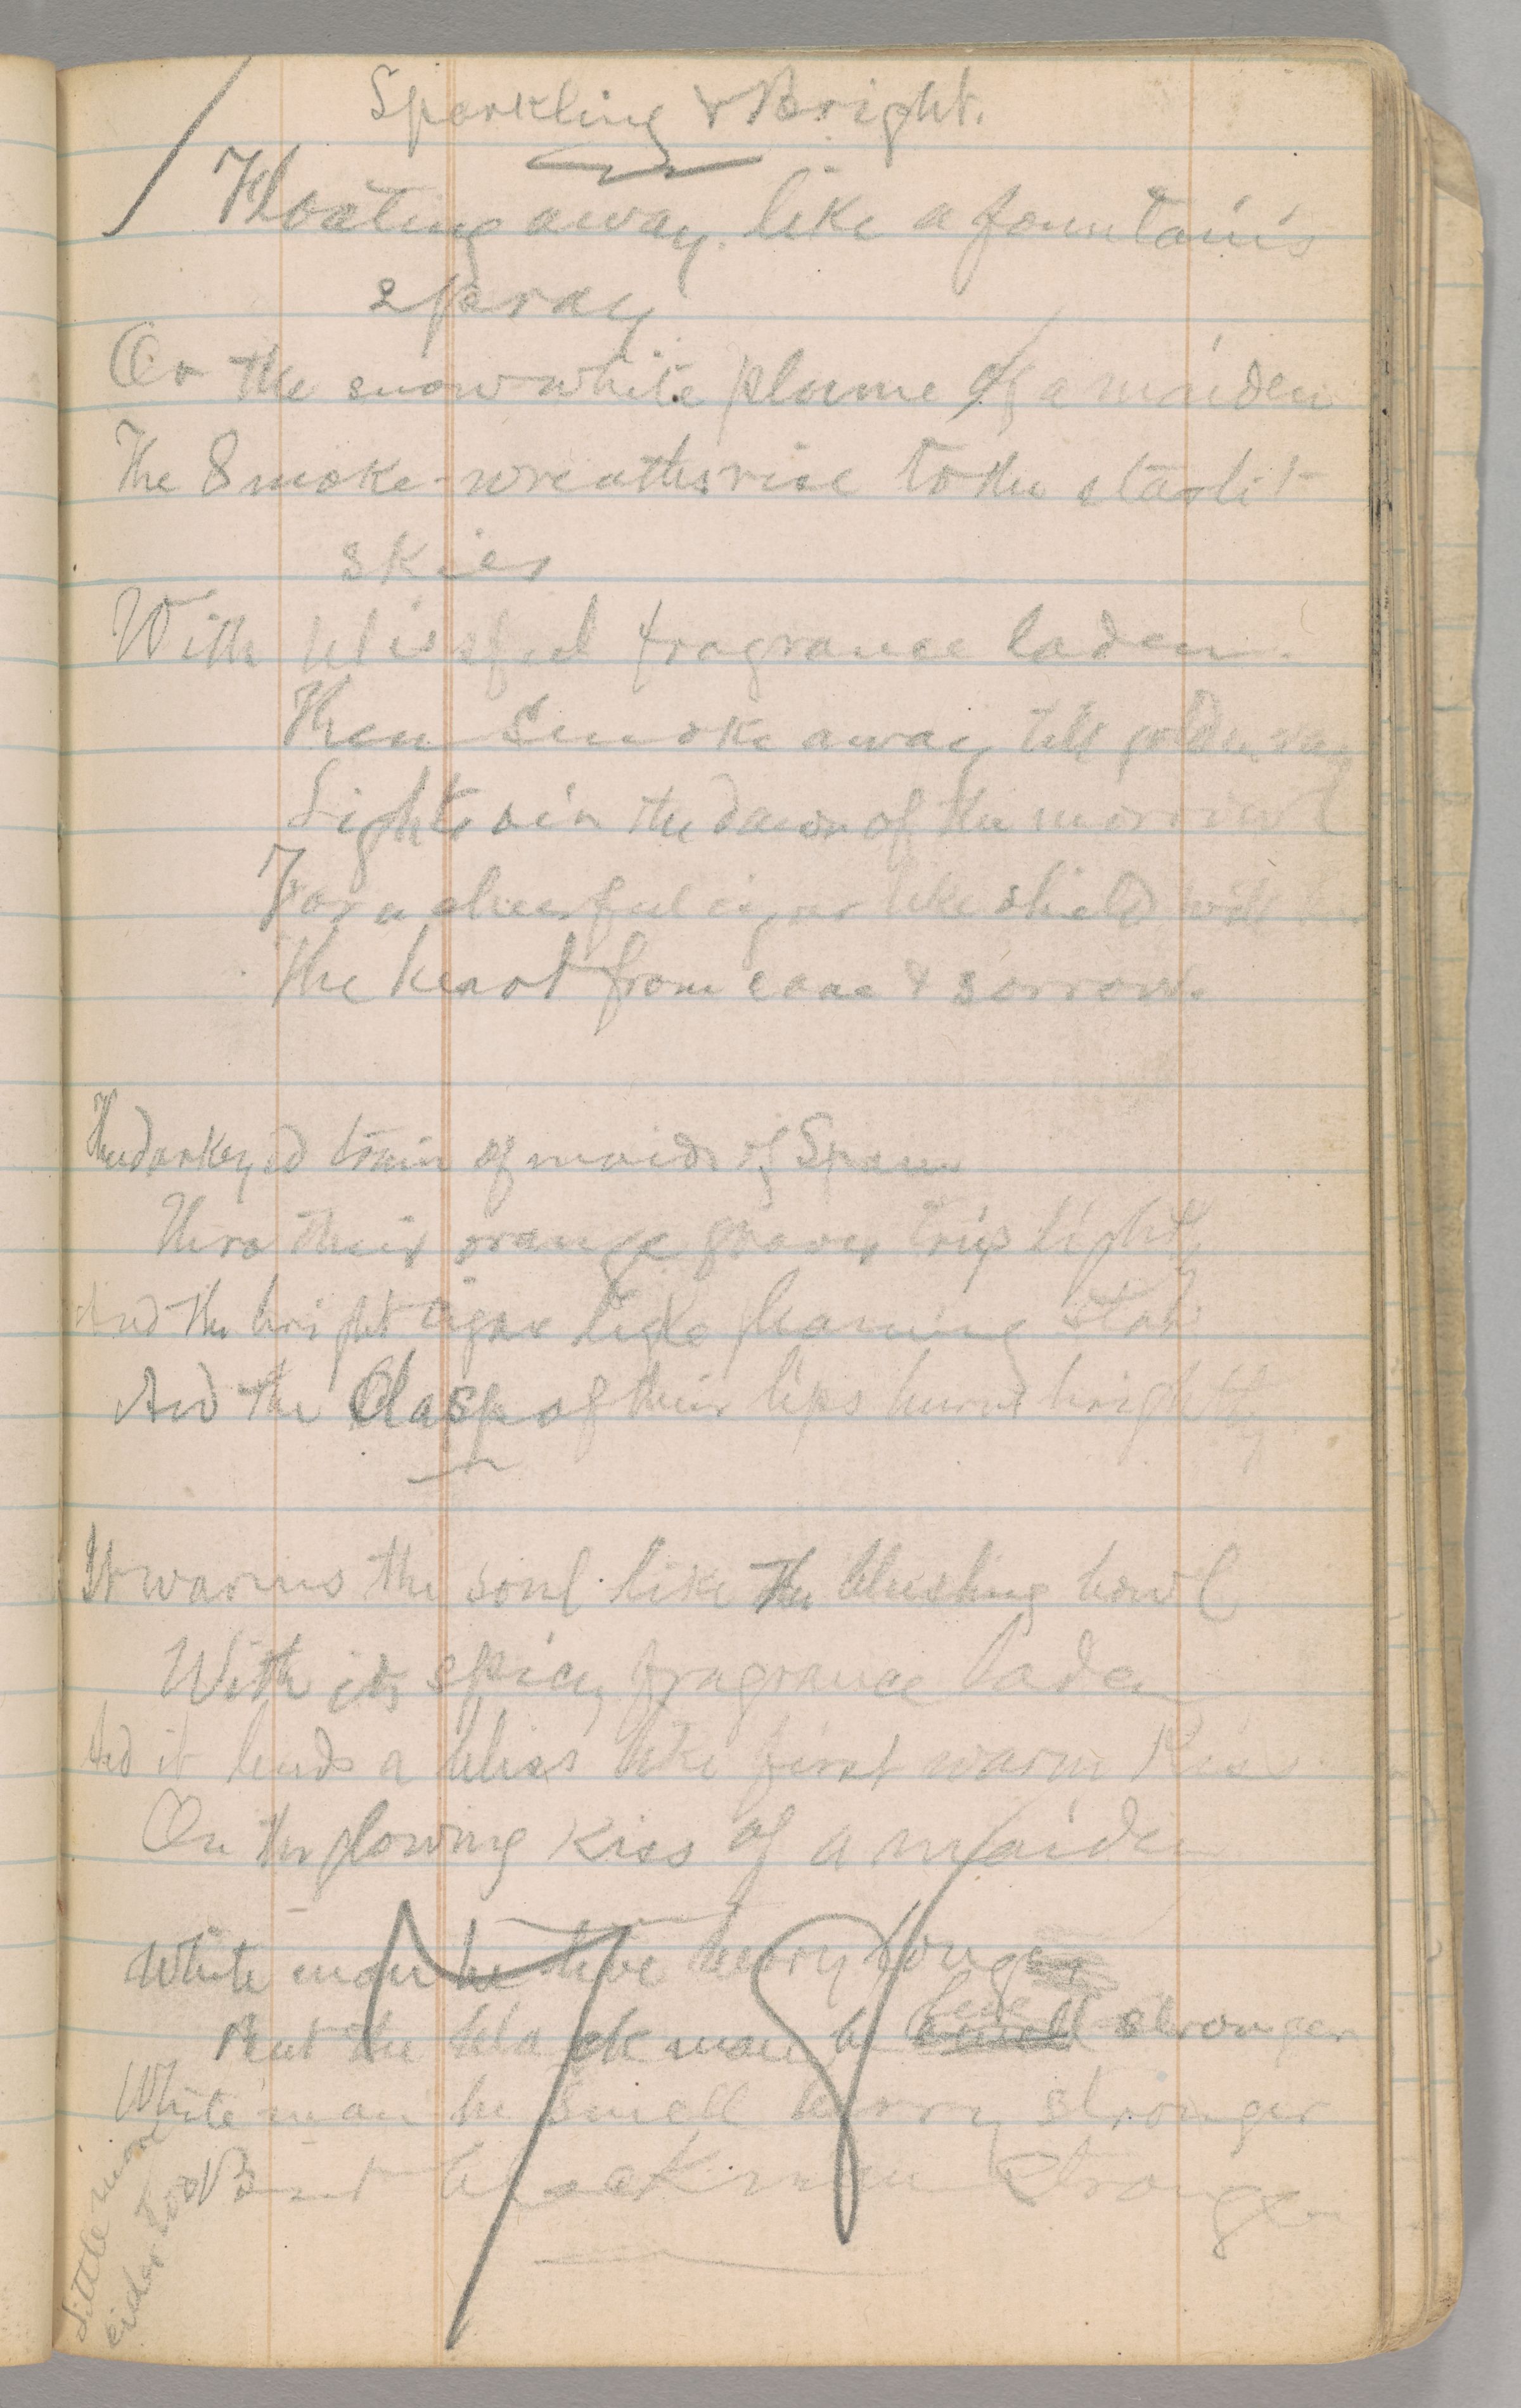 Sparkling & Bright.
Floating away. like a fountain's
spray
Or the snow white plume of a maiden
The Smoke-wreaths rise to the starlit
skies
With blissful fragrance laden.
Then Smoke away till golden ray
Lights up the dawn of the morrow
For a cheerful cigar like shield will bar
The heart from care & sorrow.
The dark eyed train of maids of Spain
Thro their orange groves trip lightly
And the bright cigar like gleaming star
And the Clasp of their lips burns brightly
It warms the soul like the blushing bowl
With its spicy fragrance laden
And it lends a bliss like first warm kiss
On the glowing kiss of a maiden
White man he live berry long
But the black man he live stronger
White man he smell berry stronger
But black man stronger
Little more
cider too